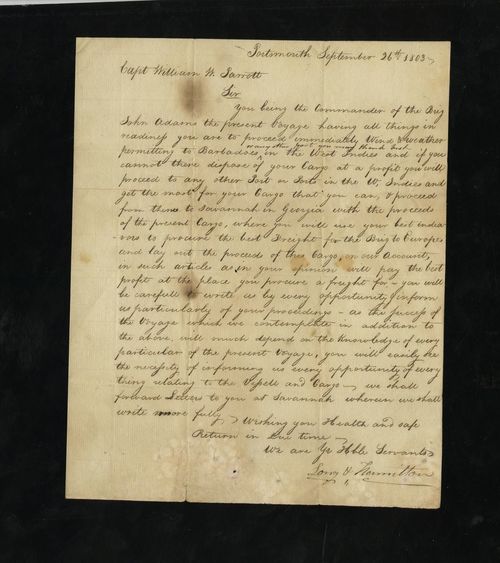 Portsmouth September 26th 1803
Capt William W. Parrott
Sir
You being the Commander of the Brig
John Adams the present Voyage having all things in
readiness you are to proceed immediately Wind & weather
permitting to Barbadoes or any other port you may think best in the West Indies and if you
cannot there dispose of your Cargo at a profit you will
proceed to any other Port or Ports in the W. Indies and
get the most for your Cargo that you can, & proceed
from thence to Savannah in Georgia with the proceeds
of the present Cargo, where you will use your best endea
-vors to procure the best Freight for the Brig to Europe
and lay out the proceed of this Cargo, on our Account,
in such articles as in your opinion will pay the best
profit at the place you procure a freight for - you will
be carefull to write us by every opportunity & inform
us particularly of your proceedings - as the success of
the Voyage which we contemplate in addition to
the above, will much depend on the Knowledge of every
particular of the present Voyage, you will easily see
the necessity of informing us every opportunity of every
thing relating to the Vessell and Cargo - we shall
forward Letters to you at Savannah wherein we shall
write more fully - Wishing you Health and safe
Return in Due time
We are Yr Hble Servants
Long & Hamilton